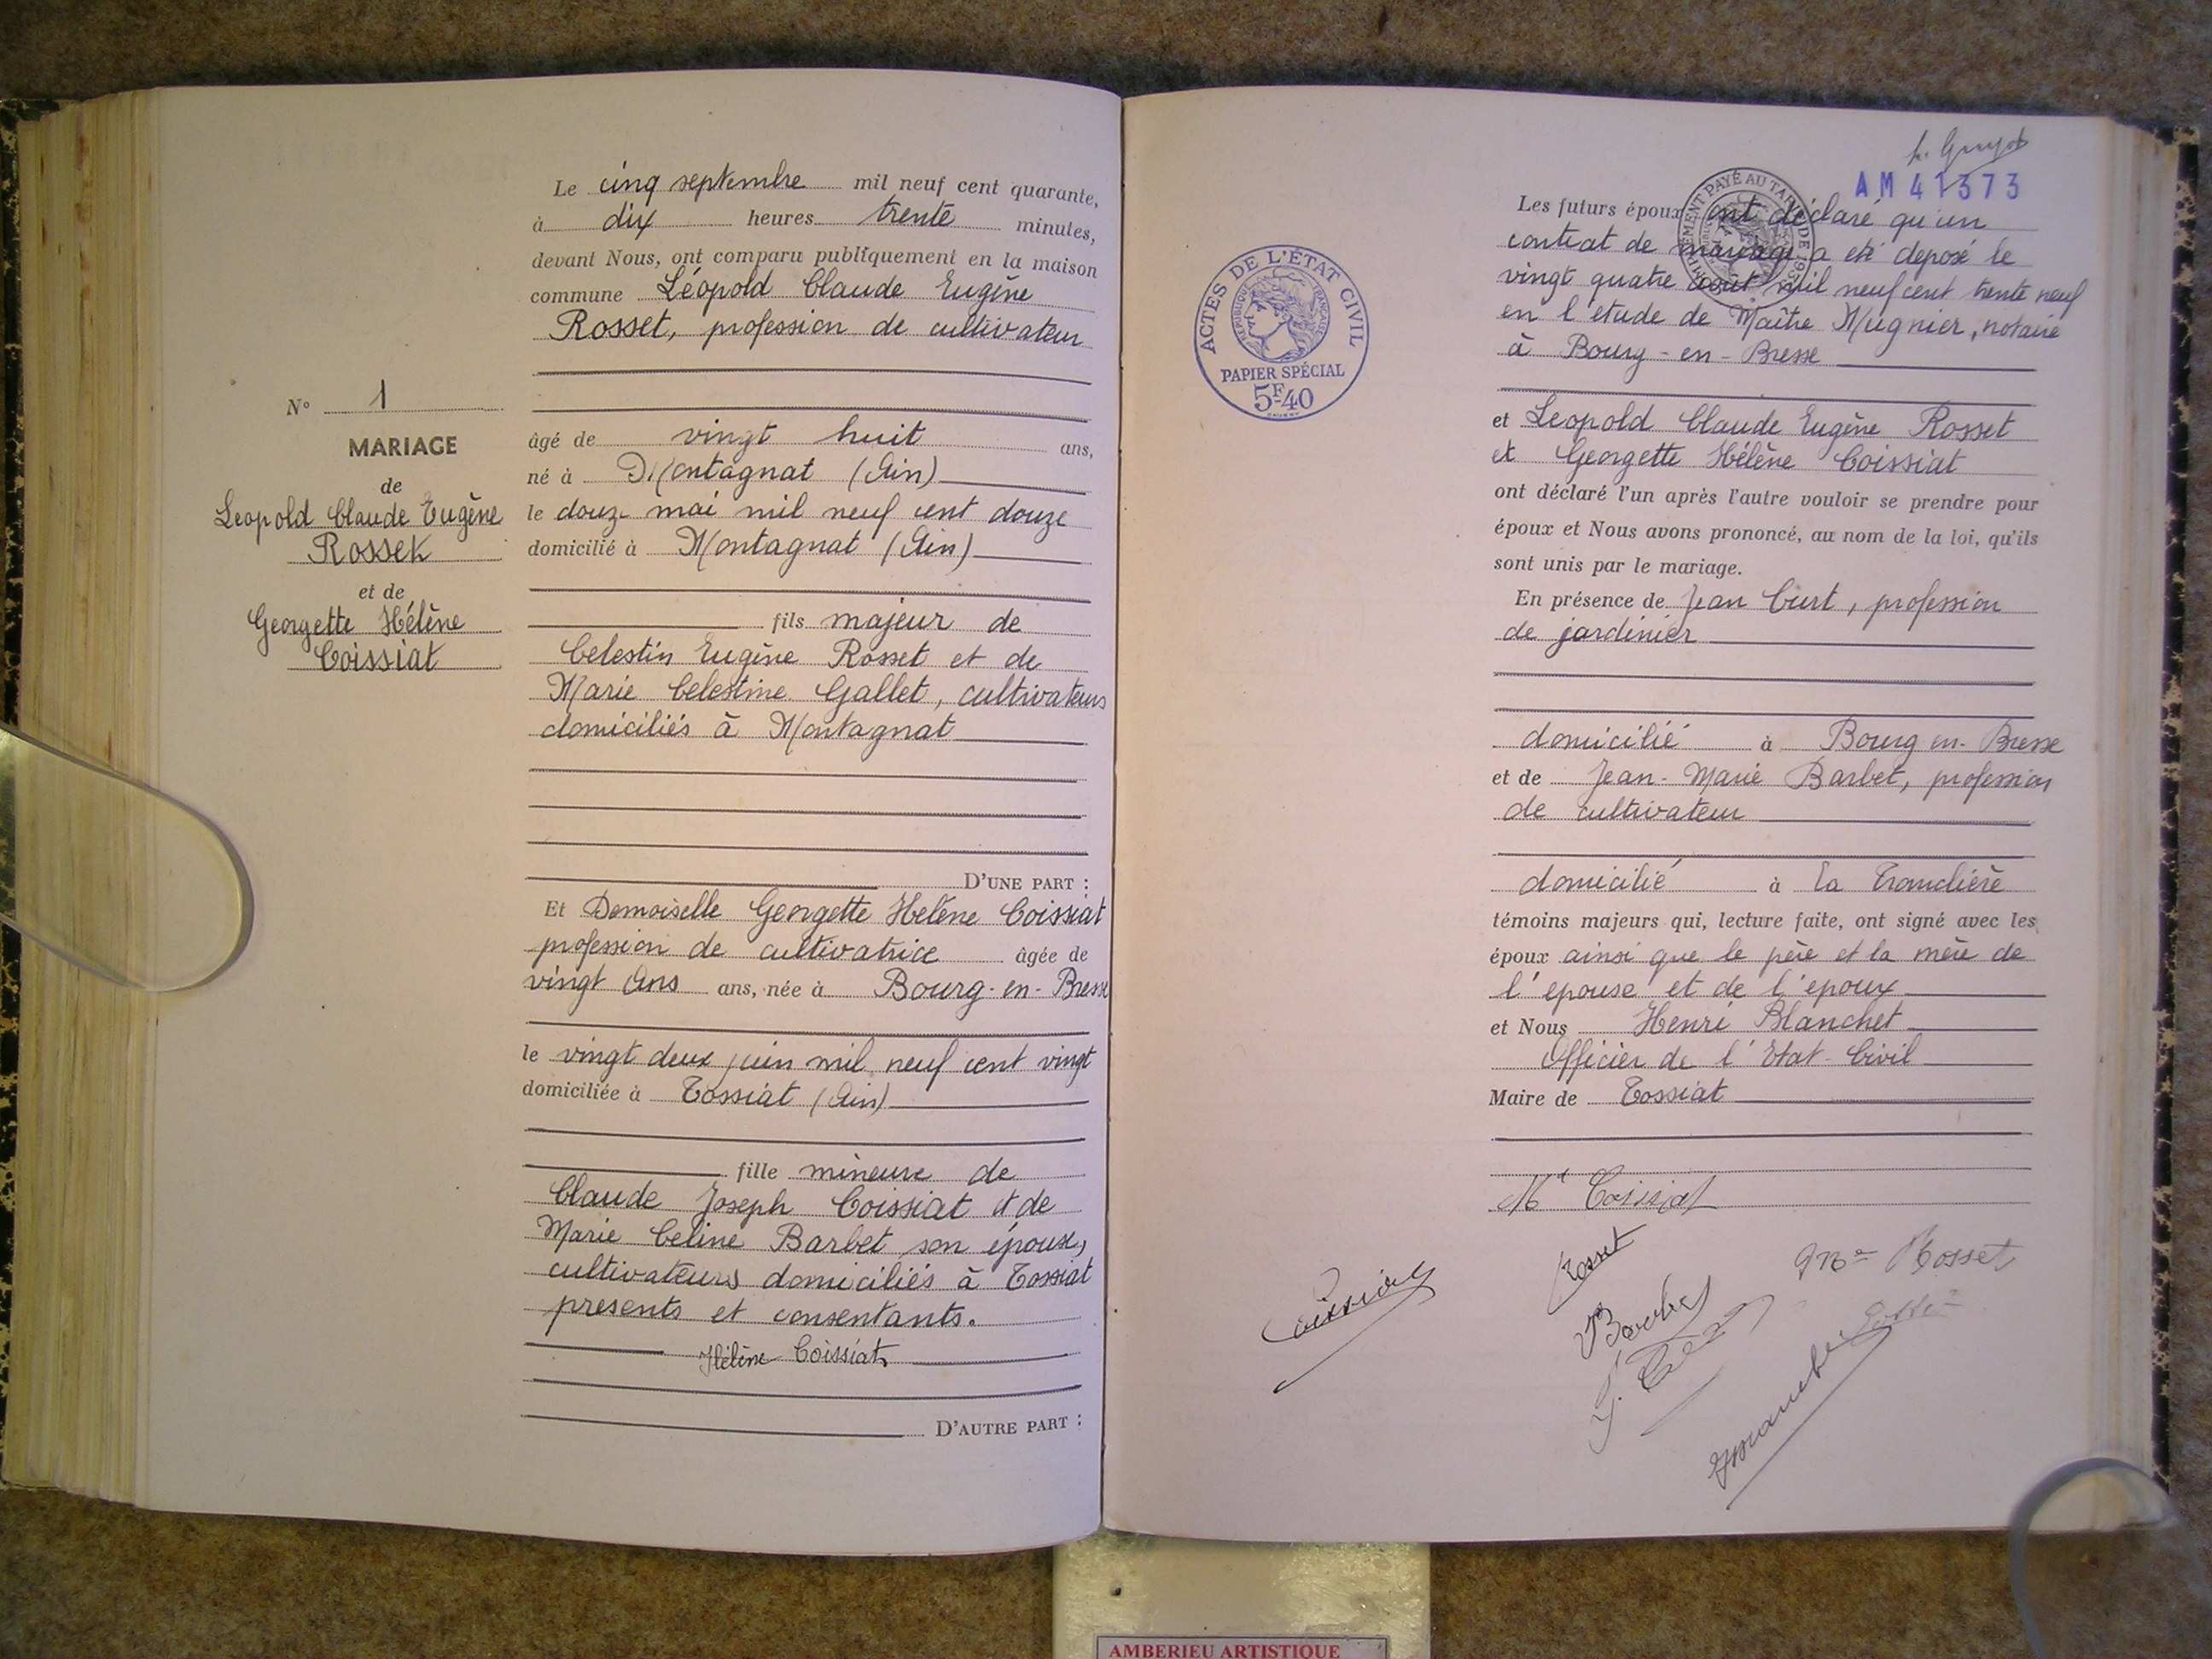 Le cinq septembre mil neuf cent quarante,
à dix heures trente minutes,
devant Nous, ont comparu publiquement en la maison
commune Léopold Claude Eugène
Rosset, profession de cultivateur
N° 1
MARIAGE
de
Leopold Claude Eugène
Rosset
et de
Georgette Hélène
Coissiat
âgé de vingt huit ans,
né à Montagnat (Ain)
le douze mai mil neuf cent douze
domicilié à Montagnat (Ain)
fils majeur de
Celestin Eugène Rosset et de
Marie Celestine Gallet, cultivateurs
domiciliés à Montagnat
D'UNE PART :
Et Demoiselle Georgette Helène Coissiat
profession de cultivatrice âgée de
vingt ans ans, née à Bourg-en-Bresse
le vingt deux juin mil neuf cent vingt
domiciliée à Tossiat (Ain)
fille mineure de
Claude Joseph Coissiat et de
Marie Celine Barbet son épouse,
cultivateurs domiciliés à Tossiat
presents et consentants.
Hélène Coissiat
D'AUTRE PART :
AM 41373
ACTES DE L'ÉTAT CIVIL
RÉPUBLIQUE FRANÇAISE
PAPIER SPÉCIAL
5F40
PAYÉ AU TARIF DE
Les futurs époux ont déclaré qu'un
contrat de mariage a eté deposé le
vingt quatre août mil neuf cent trente neuf
en l'etude de Maître Mugnier, notaire
à Bourg-en-Bresse
et Leopold Claude Eugène Rosset
et Georgette Hélène Coissiat
ont déclaré l'un après l'autre vouloir se prendre pour
époux et Nous avons prononcé, au nom de la loi, qu'ils
sont unis par le mariage.
En présence de Jean Curt, profession
de jardinier
domicilié à Bourg en-Bresse
et de Jean-Marie Barbet, profession
de cultivateur
domicilié à La Tranclière
témoins majeurs qui, lecture faite, ont signé avec les
époux ainsi que le père et la mère de
l'epouse et de l'epoux
et Nous Henri Blanchet
Officier de l'Etat-Civil
Maire de Tossiat
Coissiat
Rosset
Rosset
Coissiat
Barbet
AMBERIEU ARTISTIQUE